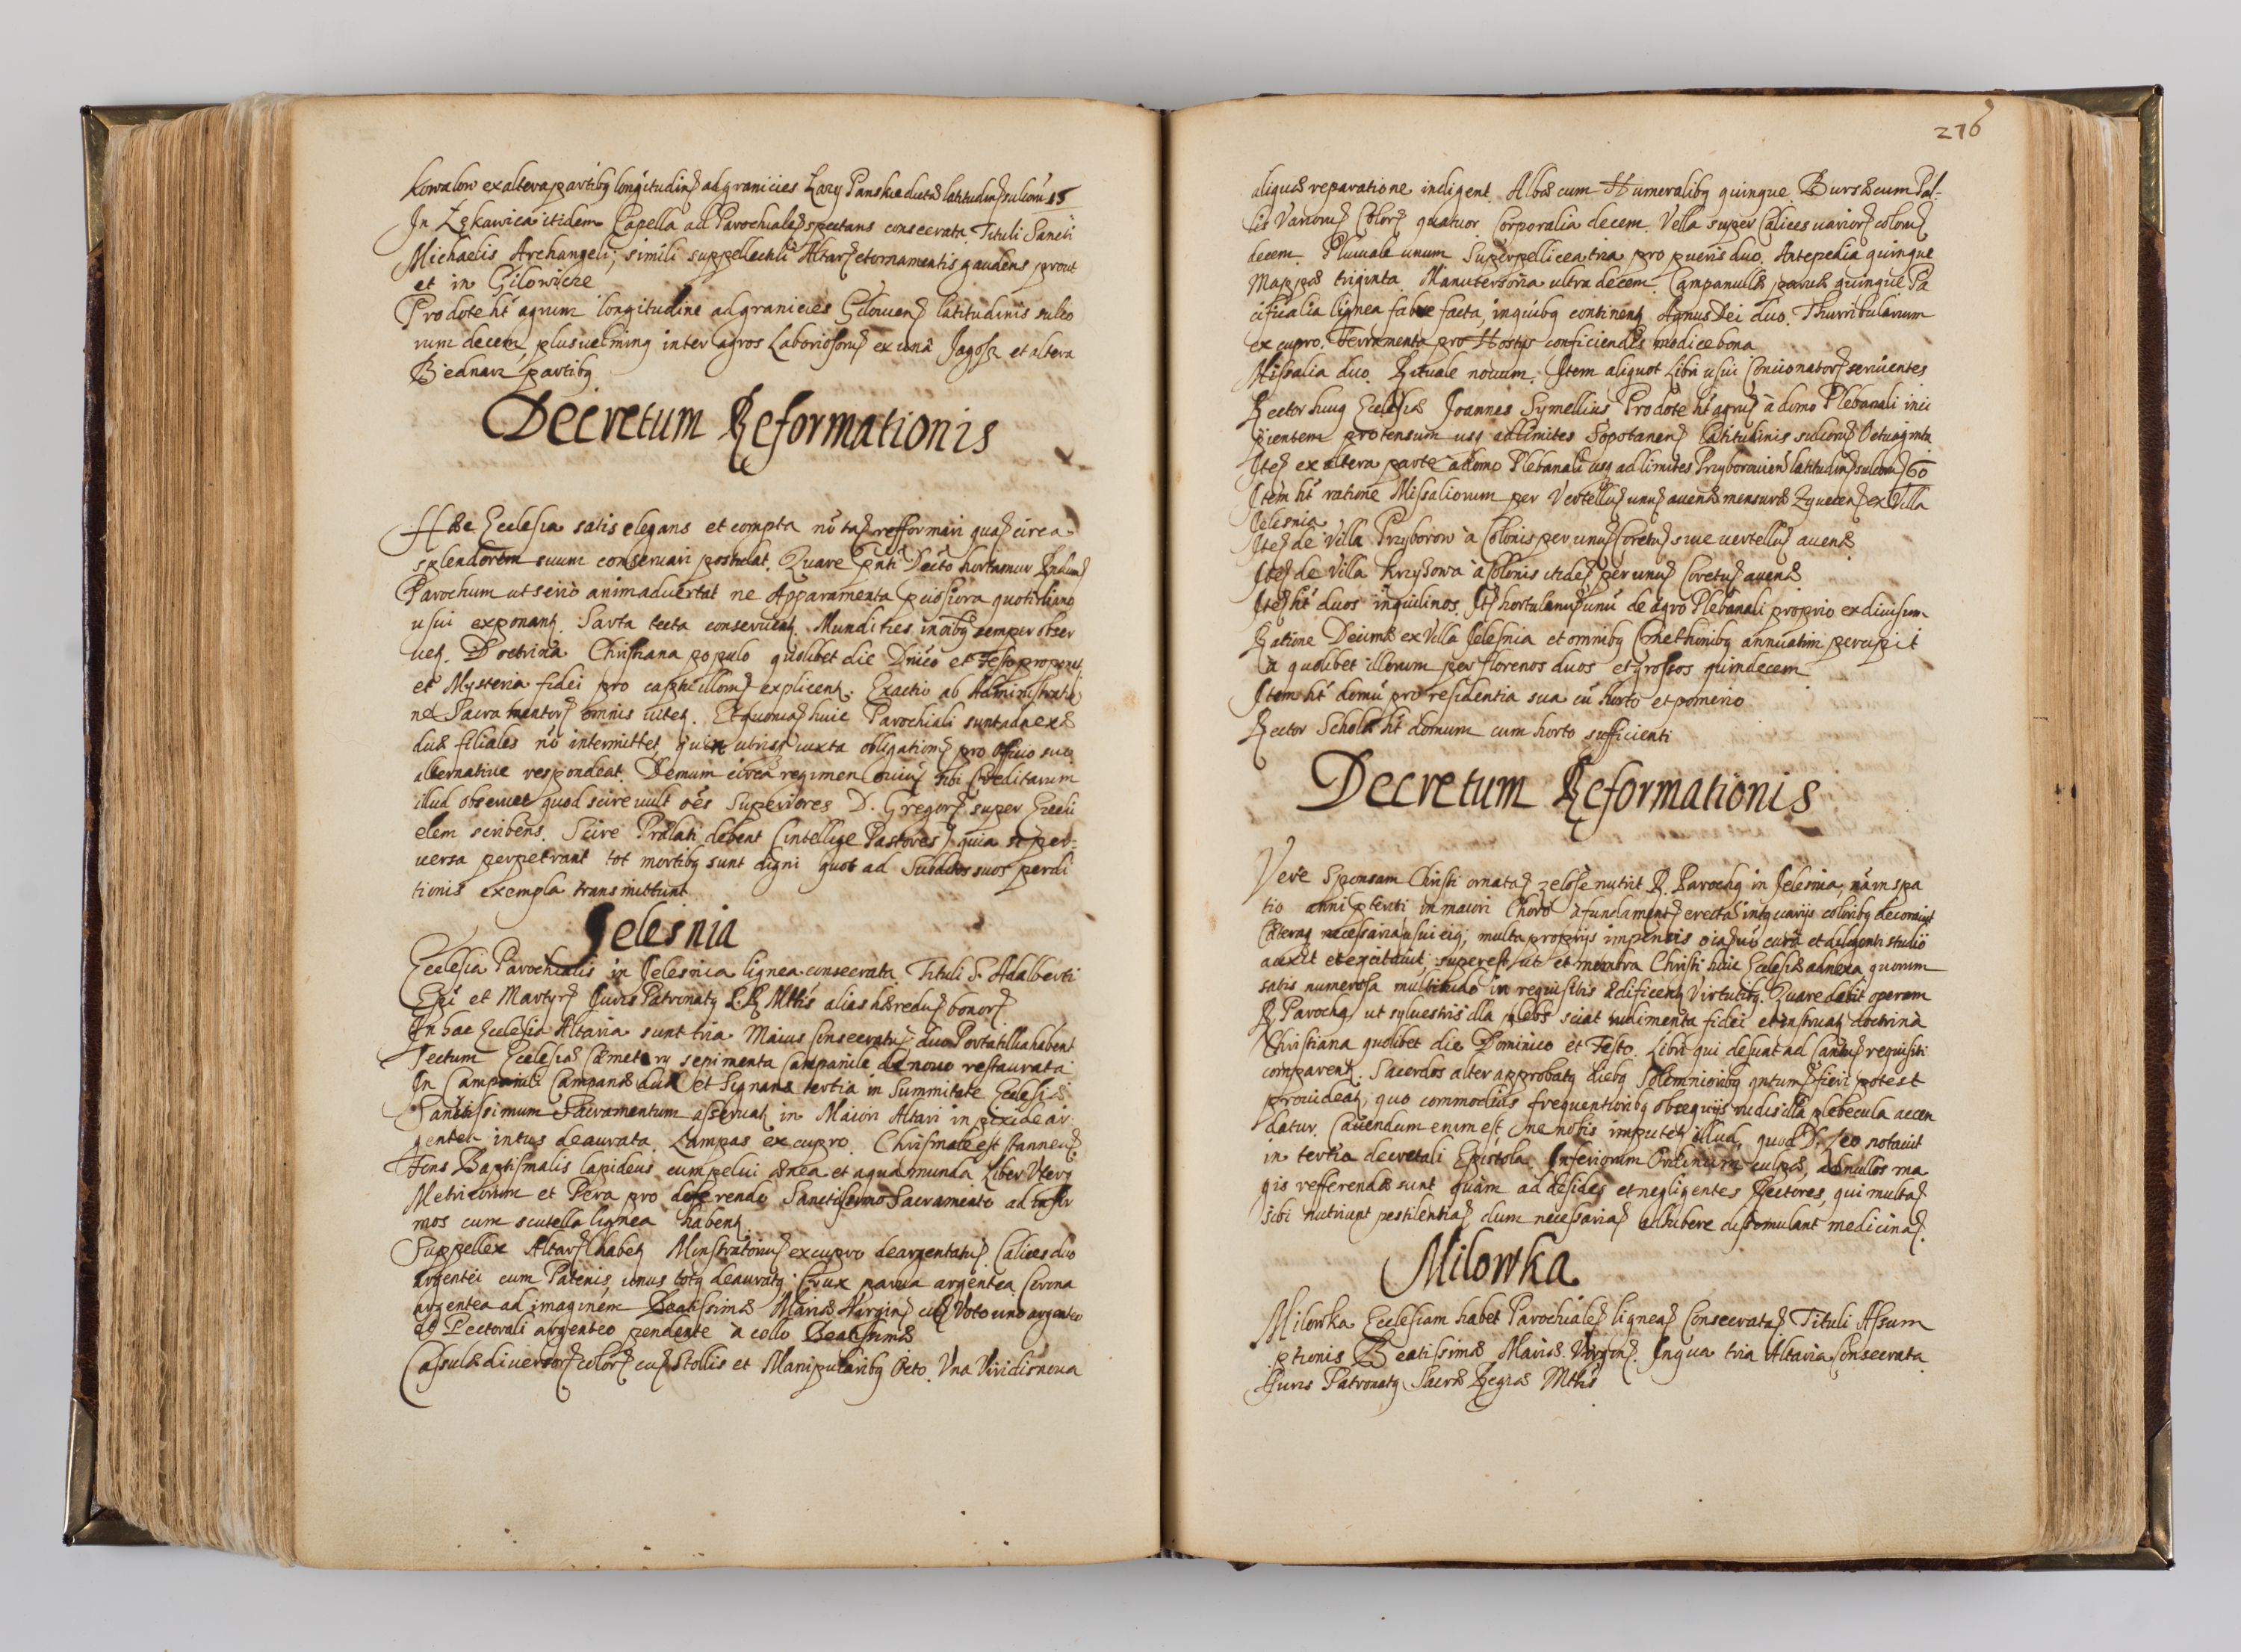 Kowalow ex altera partibq longitudinꝭ ad granicies Lazy Panskie dictæ latitudinꝭ sulcorū 15
In Łękawica itidem Capella ad Parochialēꝭ spectans consecrata. Tituli Sancti
Michaelis Archangeli; simili suppellectili Altarꝭ et ornamentis gaudens prout
et in Gilowicze
Pro dote ht̄ agrum longitudine ad granicies Gilowienꝭ latitudinis sulco
rum decem, plus vel minꝗ inter agros Laboriosorūꝭ ex unâ Jagosz et altera
Biednarz partibq
Decretum Reformationis
Hæc Ecclesia satis elegans et compta nō taꝭ refformari quaꝭ circa
splendorem suum conservari postulat. Quare pn̄ti Dēcto hortamur Rndum
Parochum ut serio animadvertat ne Apparamenta pciosiora quotidiano
usui exponanꝗ. Sarta tecta conservenꝗ. Mundities in oībꝗ semper obser
veꝗ. Doctrina Christiana populo quolibet die Dnīco et Festo proponeꝗ
et Mysteria fidei pro captu illorūꝭ explicenꝗ. Exactio ab Administratio
ne Sacramentorꝭ omnis viteꝗ. Et quoniaꝭ huic Parochiali sunt adnexæ
duæ filiales nō intermittet quin utrisqꝫ iuxta obligationēꝭ pro officio suo
alternative respondeat. Demum circa regimen oviuꝭ sibi Creditarum
illud observet quod scire vult oēs Superiores D. Gregorꝭ super Ezechi
elem scribens. Scire Prælati debent (intellige Pastores) quia si per-
versa perpetrant tot mortibꝗ sunt digni quot ad Subditos suos perdi
tionis exempla transmittunt
Jelesnia
Ecclesia Parochialis in Jelesnia lignea consecrata. Tituli S. Adalberti
Epi et Martyrꝭ Juris Patronatꝗ S. R. Mtis alias hæreduꝭ bonorꝭ
In hac Ecclesia Altaria sunt tria Maius Consecratuꝭ duo Portatillia habent
Tectum Ecclesiæ Cæmetery sepimenta Campanile de novo restaurata
In Campanili Campanæ duæ et Signans tertia in Summitate Ecclesiæ
Sanctissimum Sacramentum asservaꝗ in Maiori Altari in pixide ar
gentea intus deaurata. Lampas ex cupro. Chrismale est stanneuꝭ
Fons Baptismalis lapideus cum pelvi ænea et aqua munda. Liber Uterꝗ
Metricorum et Pera pro deferendo Sanctissimo Sacramento ad infir
mos cum scutella lignea habenꝗ
Suppellex Altarꝭ habeꝗ Monstratoriuꝭ ex cupro deargentatuꝭ. Calices duo
argentei cum Patenis, unus totꝗ deauratꝗ Crux parva argentea. Corona
argentea ad imaginem Beatissimæ Mariæ Virginꝭ cuꝭ Voto uno argenteo
et Pectorali argenteo pendente à collo Beatissimæ
Casulæ diversorꝭ colorꝭ cuꝭ Stollis et Manipularibꝗ octo. Una Viridis nova
276
aliquæ reparatione indigent. Albæ cum Humeralibꝗ quinque. Bursæ cum Pal-
lis Variorūꝭ Colorꝭ quatuor. Corporalia decem. Vella super Calices variorꝭ coloruꝭ
decem. Pluviale unum Superpellicea tria pro pueris duo. Antepedia quinque
Mappæ triginta. Manutersoria ultra decem. Campanullæ parvæ quinque Pa
cificalia lignea fabre facta, in quibꝗ continenꝗ Agnus Dei duo. Thurribularium
ex cupro. Ferramenta pro Hostys conficiendis modice bona
Missalia duo. Rituale novum. Item aliquot Libri usui Concionatorꝭ servientes
Rector huiꝗ Ecclesiæ Joannes Symellius Pro dote ht̄ agruꝭ à domo Plebanali inci
pientem protensum usqꝫ ad limites Sopotnenꝭ Latitudinis sulcorūꝭ Octuaginta
Iteꝭ ex altera parte à domo Plebanali usqꝫ ad limites Przyborovienꝭ latitudinꝭ sulcorūꝭ 60
Item ht̄ ratione Missaliorum per Vertelluꝭ unuꝭ avenæ mensuræ Zyviecenꝭ ex Villa
Jelesnia
Iteꝭ de Villa Przyborow à Colonis per unuꝭ Coretuꝭ sive vertelluꝭ avenæ
Iteꝭ de Villa Krzyzowa à Colonis itideꝭ per unuꝭ Coretuꝭ avenæ
Iteꝭ ht̄ duos inquilinos Itꝭ hortulanuꝭ unū de agro Plebanali proprio ex divisum
Ratione Decimæ ex Villa Jelesnia et omnibꝗ Cmethonibꝗ annuatim percipit
à quolibet illorum per florenos duos et grossos quindecem
Item ht̄ domū pro residentia sua cū horto et pomerio
Rector Scholæ ht̄ domum cum horto sufficienti
Decretum Reformationis
Vere Sponsam Christi ornataꝭ zelose nutrit R. Parochꝗ in Jelesnia, nam spa
tio anni pteriti in maiori Choro à fundamentꝭ erecta intꝗ varijs coloribꝗ decoravit
Cæteraqꝫ necessaria usui eiꝗ; multa proprijs impensis oīa sui cura et diligenti studio
auxit et excitavit, superest, ut et membra Christi huic Ecclesiæ adnexa quorum
satis numerosa multitudo in requisitis ædificenꝗ Virtutibꝗ. Quare dabit operam
R. Parochꝗ, ut sylvestris illa plebs sciat rudimenta fidei et instruaꝗ doctrina
Christiana quolibet die Dominico et Festo. Libri qui desunt ad Cantuꝭ requisiti
comparenꝗ. Sacerdos alter approbatꝗ diebꝗ Solemnioribꝗ qntumꝭ fieri potest
provideaꝗ, quo commodius frequentioribꝗ obsequijs rudis illa plebecula accen
datur. Cavendum enim est, ne nobis imputeꝗ illud, quod D. Leo notavit
in tertia decretali Epistola. Inferiorum Ordinum culpæ, ad nullos ma
gis refferendæ sunt quàm ad desides et negligentes Rectores, qui multaꝭ
sibi nutriunt pestilentiaꝭ dum necessariaꝭ adhibere dissimulant medicinaꝭ.
Milowka
Milowka Ecclesiam habet Parochialeꝭ ligneaꝭ Consecrataꝭ Tituli Assum
ptionis Beatissimæ Mariæ Virginꝭ. In qua tria Altaria Consecrata
Juris Patronatꝗ Sacræ Regiæ Mtis